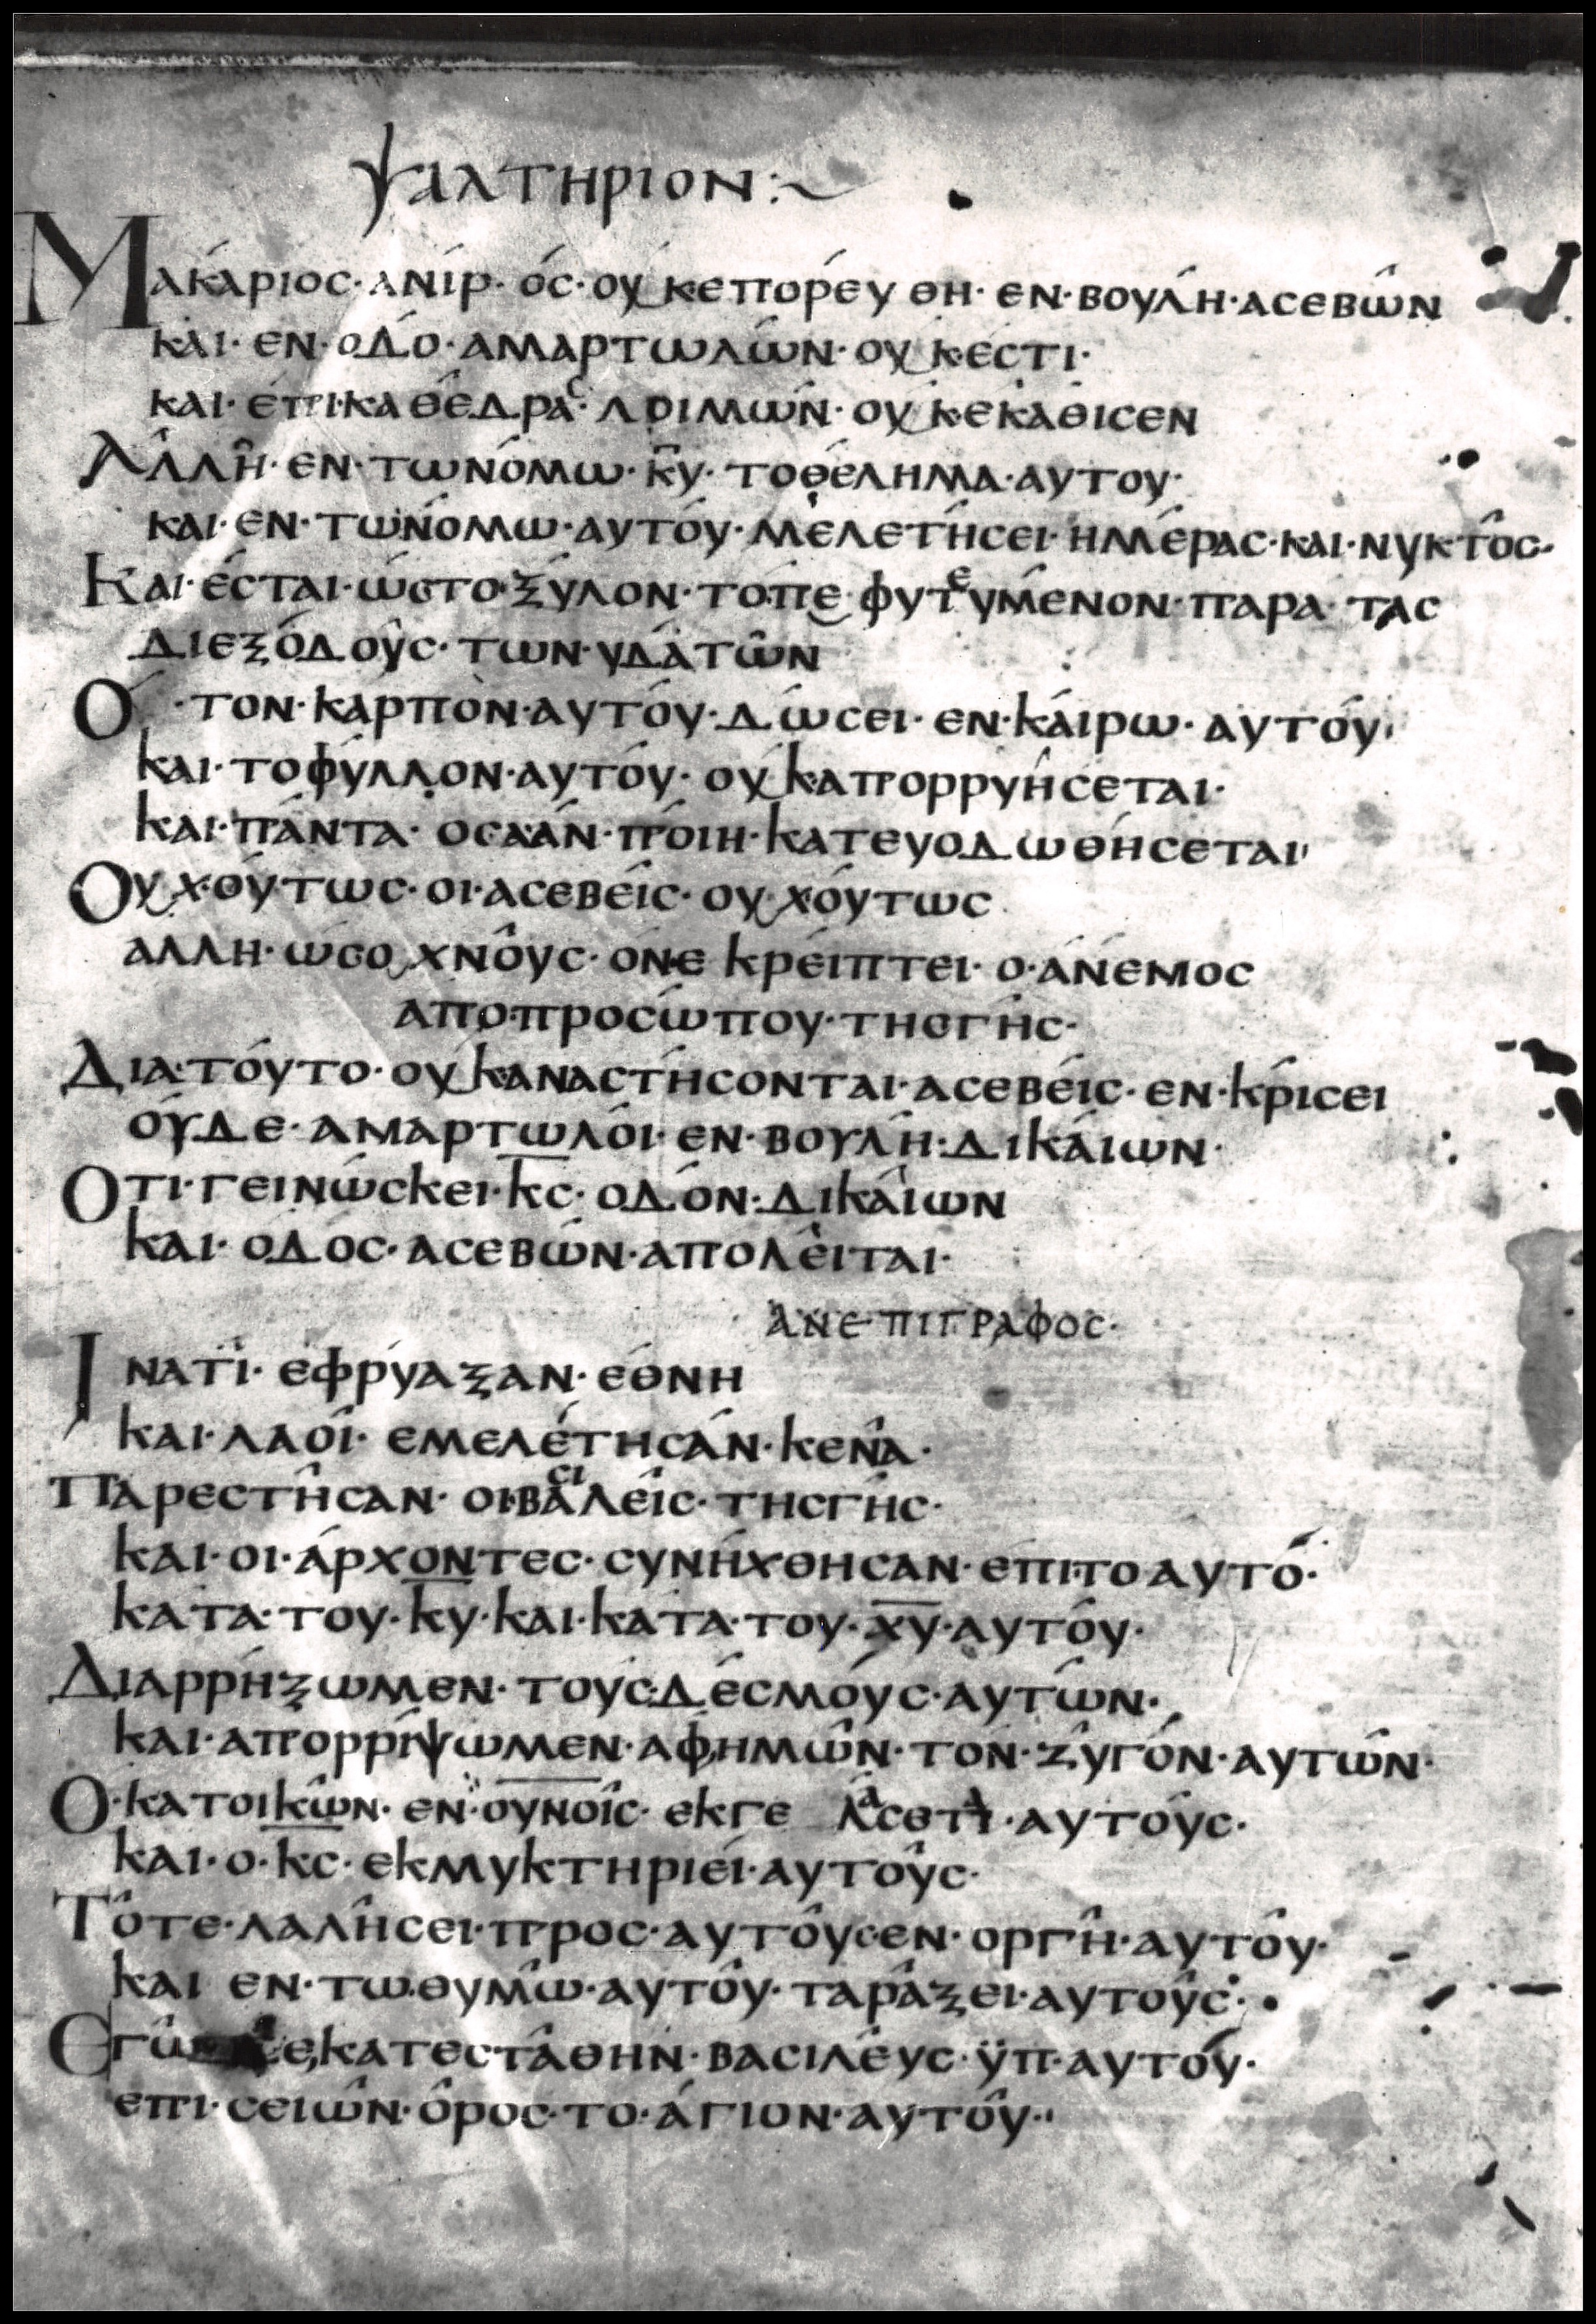 ψαλτηριον:~
Μακάριος·ανίρ·ός·ουκεπορέυθη·εν·βουλή·ασεβών
και·εν·οδό·αμαρτωλών·ουκέστι·
και·επικαθέδρας·λοιμών·ουκεκάθισεν
Αλλῆ·εν·τωνόμω·κ̅υ̅·τοθέλημα·αυτου·
και·εν·τωνόμω·αυτόυ·μελετήσει·ημέρας·και·νυκτός·
Και·έσται·ώστο·ξύλον·τόπε φυτευμένον·παρα·τας
διεξόδους·των·υδάτων
Ο·τον·καρπόν·αυτόυ·δώσει·εν·κάιρω·αυτόυ·
και·τοφύλλον·αυτόυ·ουκαπορρυήσεται·
και·πάντα·οσαάν·ποιη·κατευοδωθήσεται
Ουχόυτως·οι·ασεβέις·ουχόυτως
αλλη·ώσοχνόυς·όνε κρέιπτει·ο·άνεμος
αποπροσώπου·τησγής·
Διατόυτο·ουκαναστήσονται·ασεβέις·εν·κρίσει
όυδε·αμαρτωλόι·εν·βουλή·δικάιων·
Οτι·γεινώσκει·κ̅ς̅·οδόν·δικάιων
και·οδος·ασεβών·απολέιται·
ανεπιγραφος·
Ινατί·εφρύαξαν·έθνη
και·λαόι·εμελέτησαν·κενά·
Παρεστήσαν·οιβασιλέις·τησγής·
και·οι·άρχοντες·συνήχθησαν·επιτοαυτό·
κατα·του·κ̅υ̅·και·κατα·του·χ̅υ̅·αυτόυ·
Διαρρήξωμεν·τούς·δέσμούς·αυτών·
και·απορρίψωμεν·αφημών·τόν·ζυγόν·αυτών·
Ο·κατοικών·εν·ο̅υ̅ν̅ο̅ις·εκγε λάσεται·αυτόυς·
και·ο·κ̅ς̅·εκμυκτηριέι·αυτόυς·
Τότε·λαλήσει·προς·αυτόυσεν·οργή·αυτόυ·
και εν·τω·θυμώ·αυτόυ·ταράξει·αυτόυς·
Εγώ εκατεστάθην·βασιλέυς·ϋπ·αυτόυ·
επι·σειών·όρος·το·άγιον·αυτόυ·